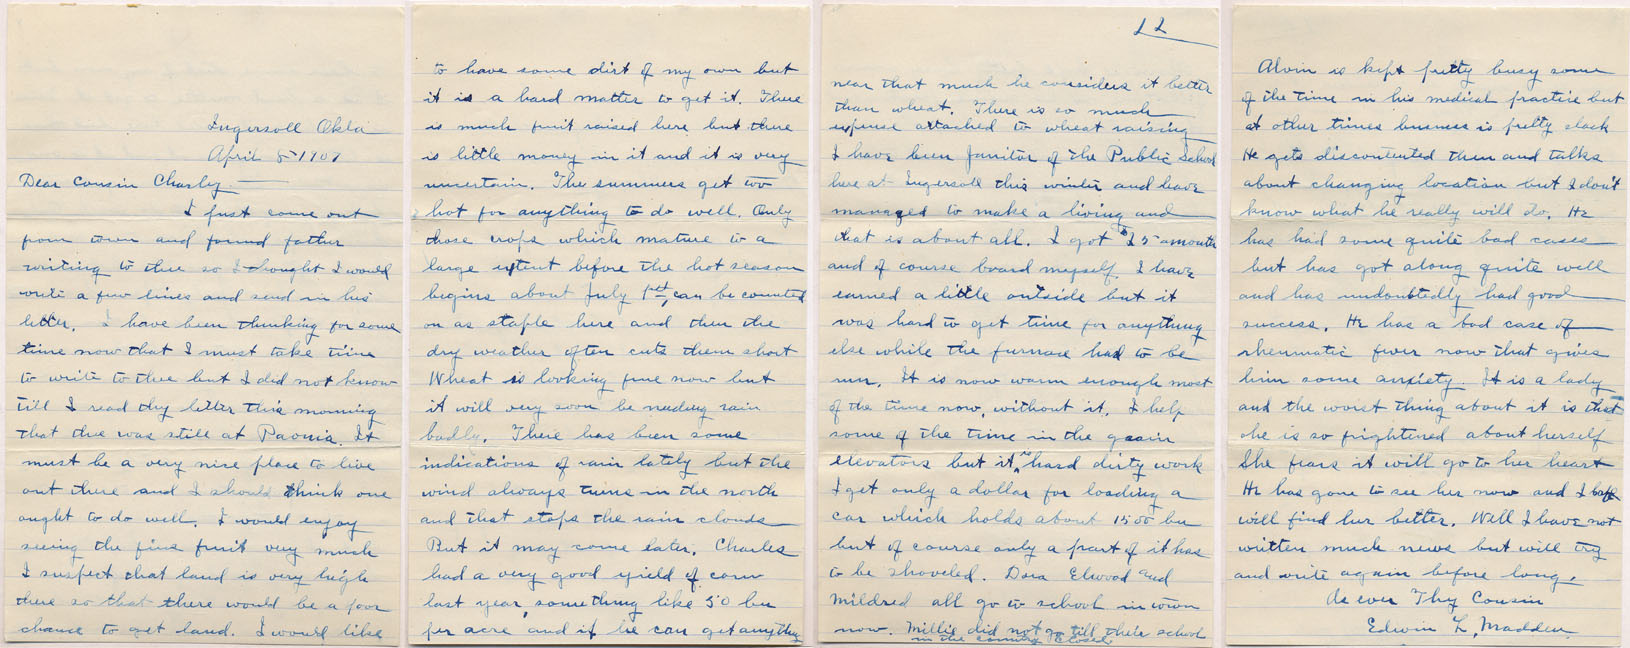 Ingersoll Okla
April 8 1907
Dear Cousin Charley
I just come out
from town and found father
writing to thee so I thought I would
write a few lines and send in his
letter. I have been thinking for some
time now that I must take time
to write to thee but I did not know
till I read thy letter this morning
that thee was still at Paonia. It
must be a very nice place to live
out there and I should think one
ought to do well. I would enjoy
seeing the fine fruit very much
I suspect that land is very high
there so that there would be a poor
chance to get land. I would like
to have some dirt of my own but
it is a hard matter to get it. There
is much fruit raised here but there
is little money in it and it is very
uncertain. The summers get too
hot for anything to do well. Only
those crops which mature to a
large extent before the hot season
begins about July 1st, can be counted
on as staple here and then the
dry weather often cuts them short
Wheat is looking fine now but
it will very soon be needing rain
badly. There has been some
indications of rain lately but the
wind always turns in the north
and that stops the rain clouds
But it may come later. Charles
had a very good yield of corn
last year, something like 50 bu
per acre and if he can get anything
near that much he considers it better
than wheat. There is so much
expense attached to wheat raising
I have been Janitor of the Public School
here at Ingersoll this winter and have
managed to make a living and
that is about all. I got a month
and of course board myself. I have
earned a little outside but it
was hard to get time for anything
else while the furnace had to be
run. It is now warm enough most
of the time now, without it. I help
some of the time in the grain
elevators but it is hard dirty work
I get only a dollar for loading a
car which holds about 1500 bu
but of course only a part of it has
to be shoveled. Dora Elwood and
Mildred all go to school in town
now. Millie did not go till their school
in the country closed
Alvin is kept pretty busy some
of the time in his medical practice but
at other times business is pretty slack
He gets discontented then and talks
about changing location but I don't
know what he really will do. He
has had some quite bad cases
but has got along quite well
and has undoubtedly had good
success. He has a bad case of
rheumatic fever now that gives
him some anxiety. It is a lady
and the worst thing about it is that
she is so frightened about herself
She fears it will go to her heart
He has gone to see her now and I hope
will find her better. Well I have not
written much news but will try
and write again before long.
As ever Thy Cousin
Edwin L. Madden